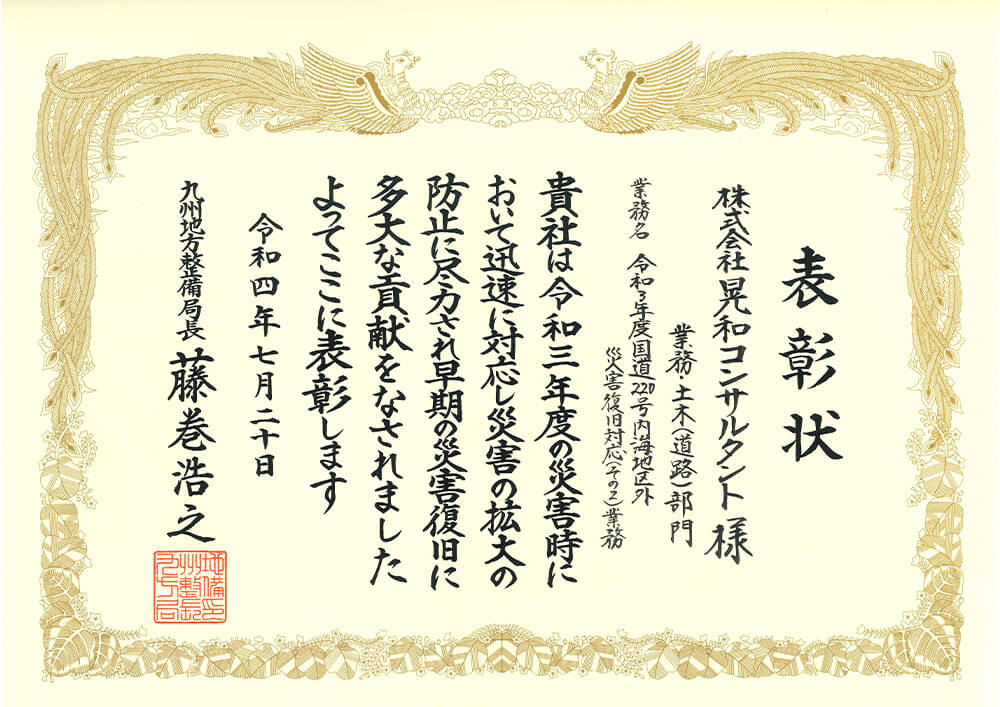 表彰状
株式会社晃和コンサルタント 様
業務・土木(道路)部門
業務名 令和3年度国道220号内海地区外
災害復旧対応(その2)業務
貴社は令和三年度の災害時に
おいて迅速に対応し災害の拡大の
防止に尽力され早期の災害復旧に
多大な貢献をなされました
よってここに表彰します
令和四年七月二十日
九州地方整備局長 藤巻浩之